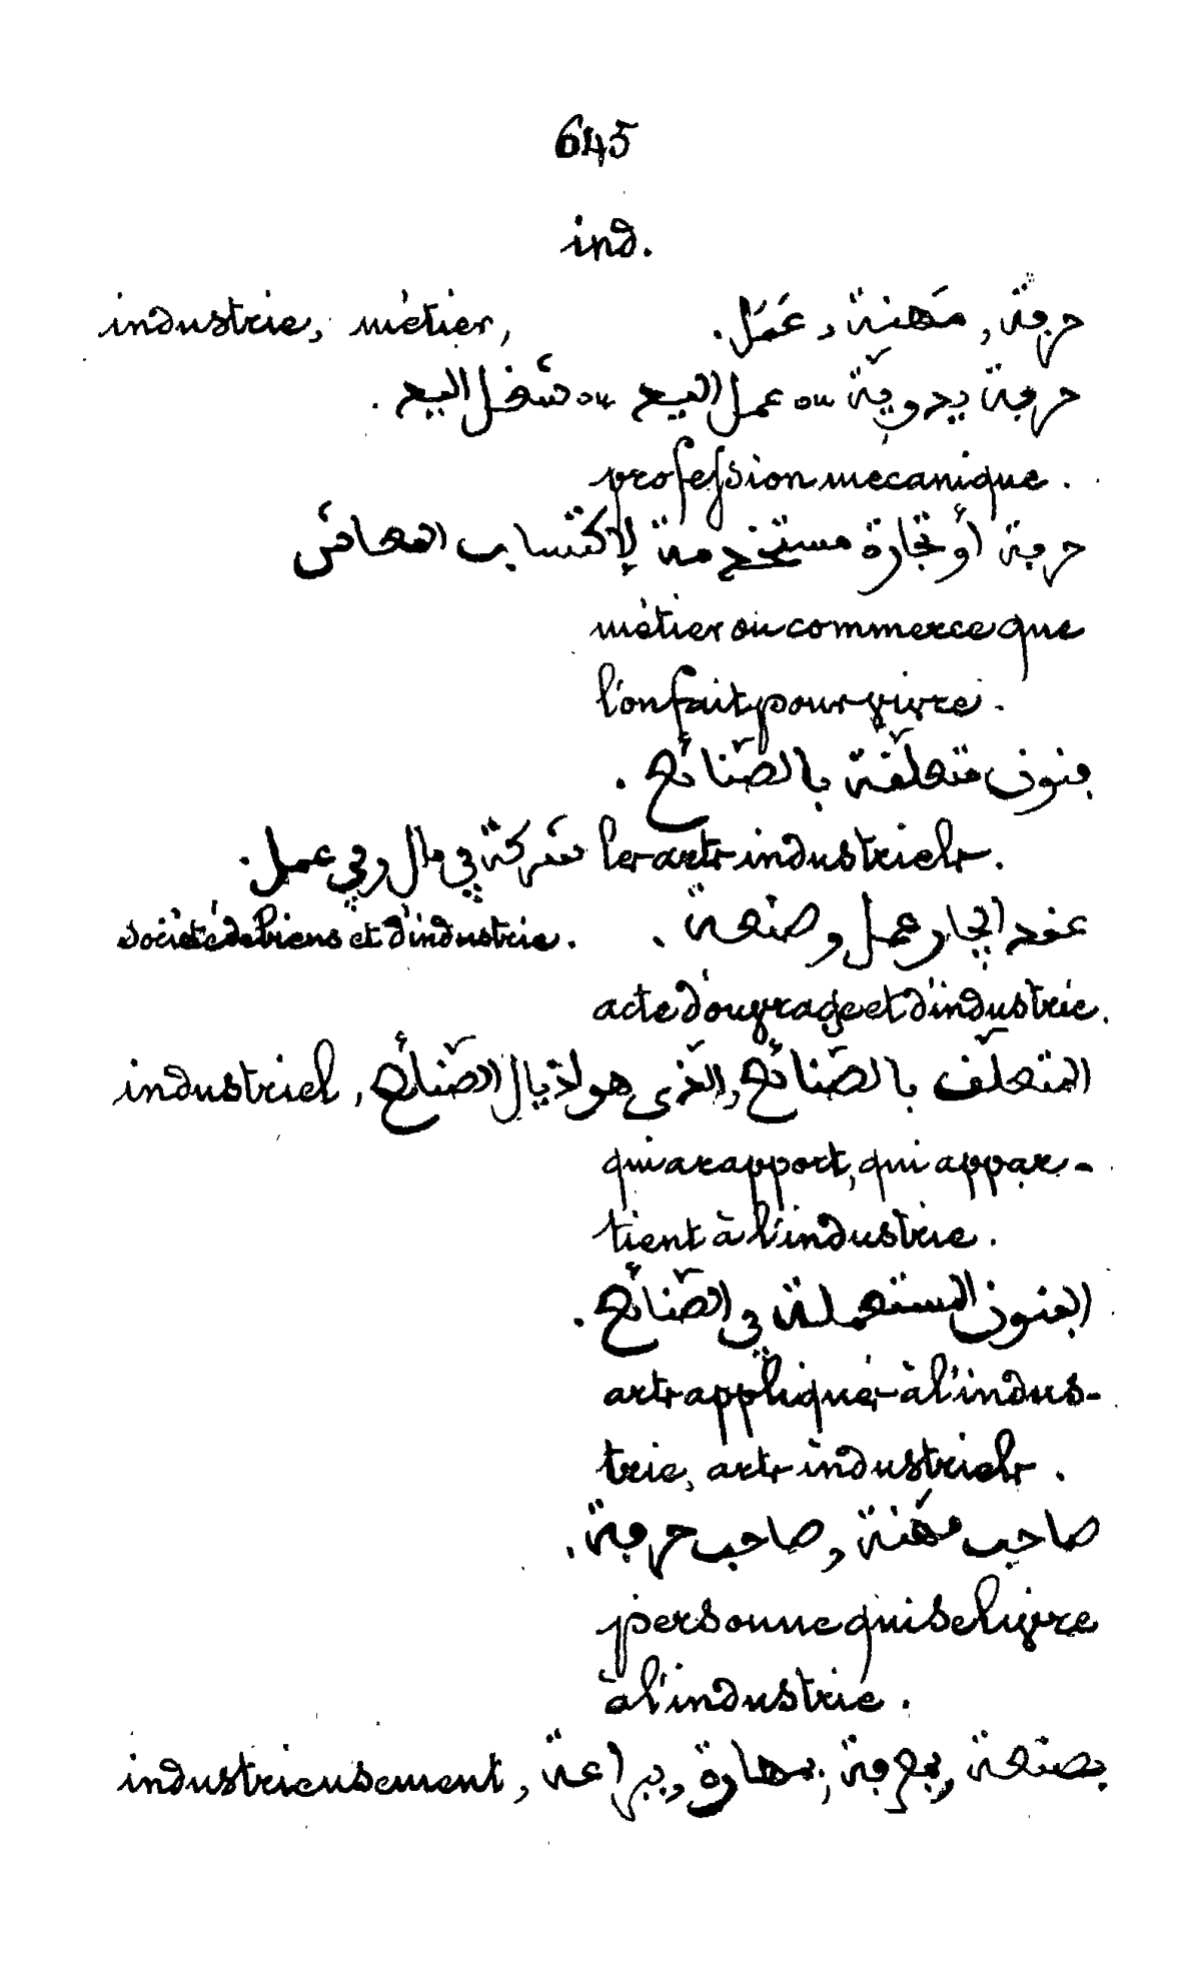 645
ind.
industrie, métier, حرفة, مَهنة, عَمَل.
حرفة يدويّة ou عمل اليد ou شغل اليد.
profession mécanique.
حرفة أو تجارة مستخدمة لاكتساب المعاش
métier ou commerce que
l'on fait pour vivre.
فنون متعلّقة بالصّنائع.
les arts industriels. شركة في مال وفي عمل.
société de biens et d'industrie. عقد إيجار عمل وصنعة.
acte d'ouvrage et d'industrie.
industriel, المتعلّق بالصّنائع, الّذى هو لاذيال الصّنائع
qui a rapport, qui appar-
tient à l'industrie.
الفنون المستعملة في الصّنائع.
arts appliqués à l'indus-
trie, arts industriels.
صاحب مَهنة, صاحب حرفة.
personne qui se livre
à l'industrie.
industrieusement, بصنعة, بحرفة, بمهارة, ببراعة